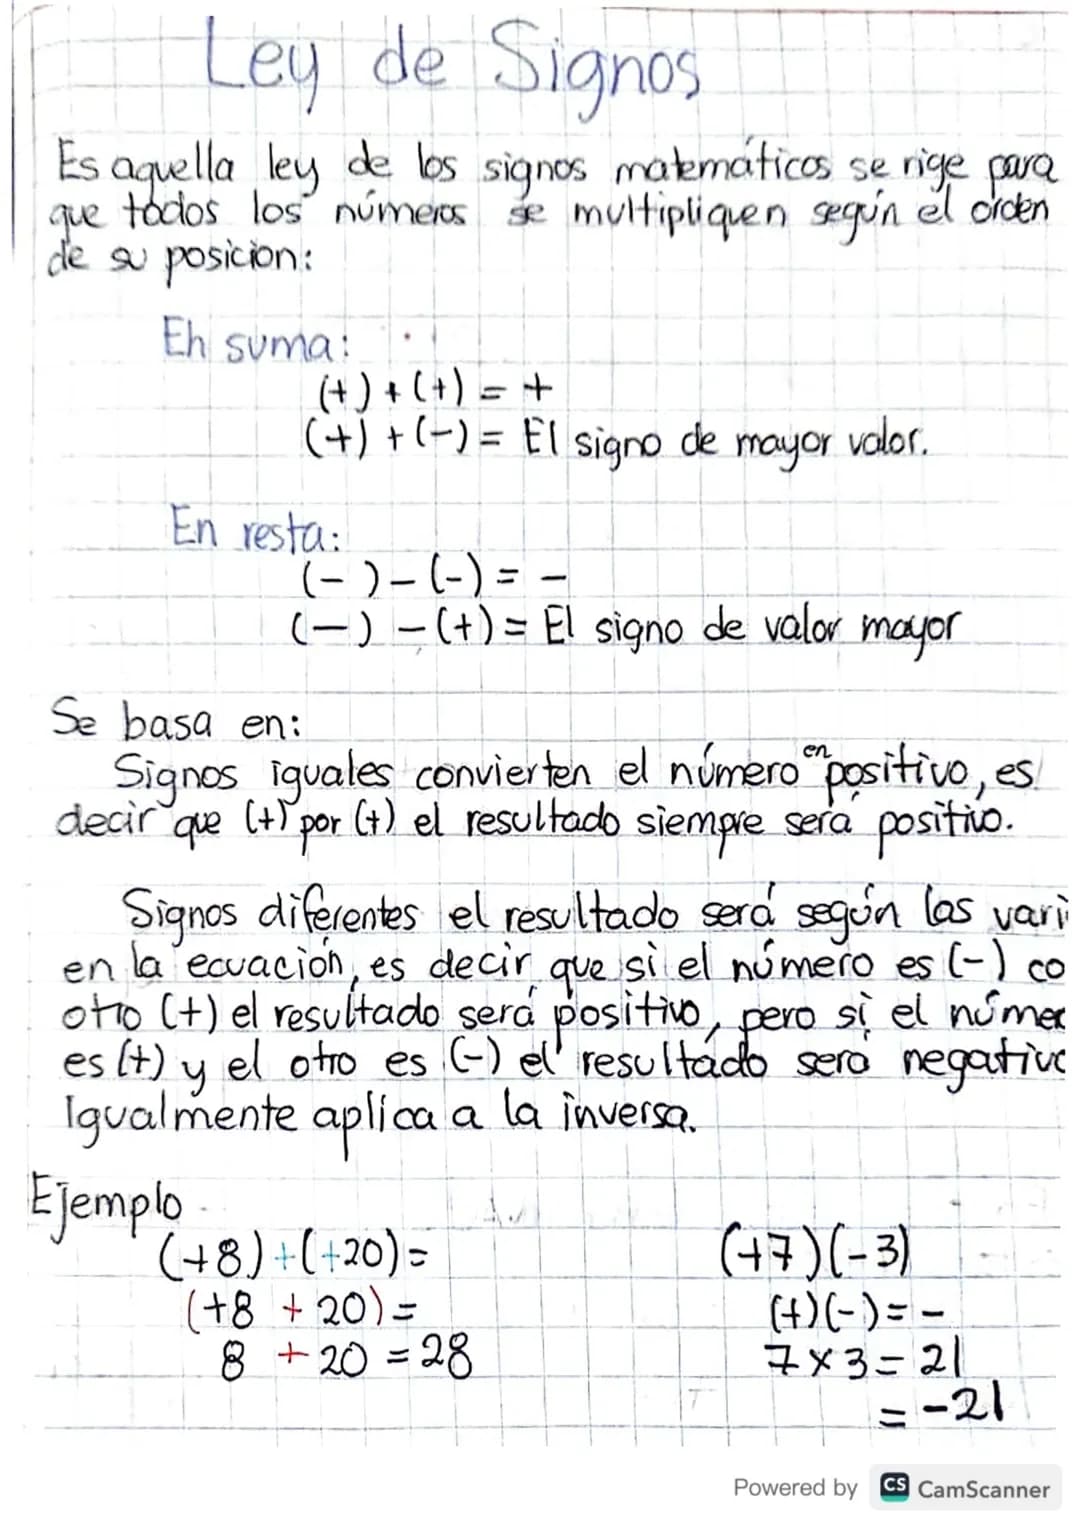 Ley de Signos
Es aquella ley de los signos matemáticos se rige para
que todos los números se multipliquen según el orden
de su posicion:
En suma:
(+) + (+) = +
(+) + (-) = El signo de mayor valor.
En resta:
(-) - (-) = -
(-) - (+) = El signo de valor mayor
Se basa en:
Signos iguales convierten el número en positivo, es
decir que (+) por (+) el resultado siempre será positivo.
Signos diferentes el resultado será según las vari
en la ecuación, es decir que si el número es (-) co
otro (+) el resultado será positivo, pero si el númer
es (+) y el otro es (-) el resultado será negativo
Igualmente aplica a la inversa.
Ejemplo
(+8) + (+20) =
(+8 + 20) =
8 + 20 = 28
(+7)(-3)
(+)(-) = -
7 x 3 = 21
= -21
Powered by CS CamScanner